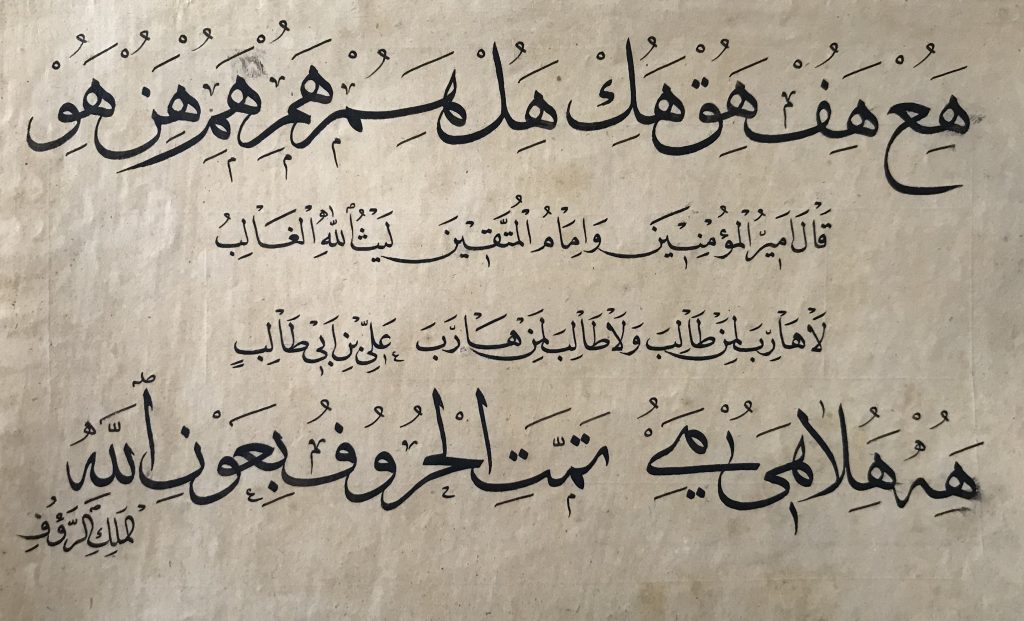 هع هف هق هك هل هسم هم هم هن هو
قَالَ اَمِيرُ الْمُؤْمِنِينَ وَاِمَامُ الْمُتَّقِينَ لَيْثُ اللهِ الْغَالِبُ
لَا هَارِبَ لِمَنْ طَالِبَ وَلَا طَالِبَ لِمَنْ هَارَبَ عَلِيِّ بْنِ اَبِي طَالِبٍ
هه هلا هى تمت الحروف بعون الله
الملك الرؤف